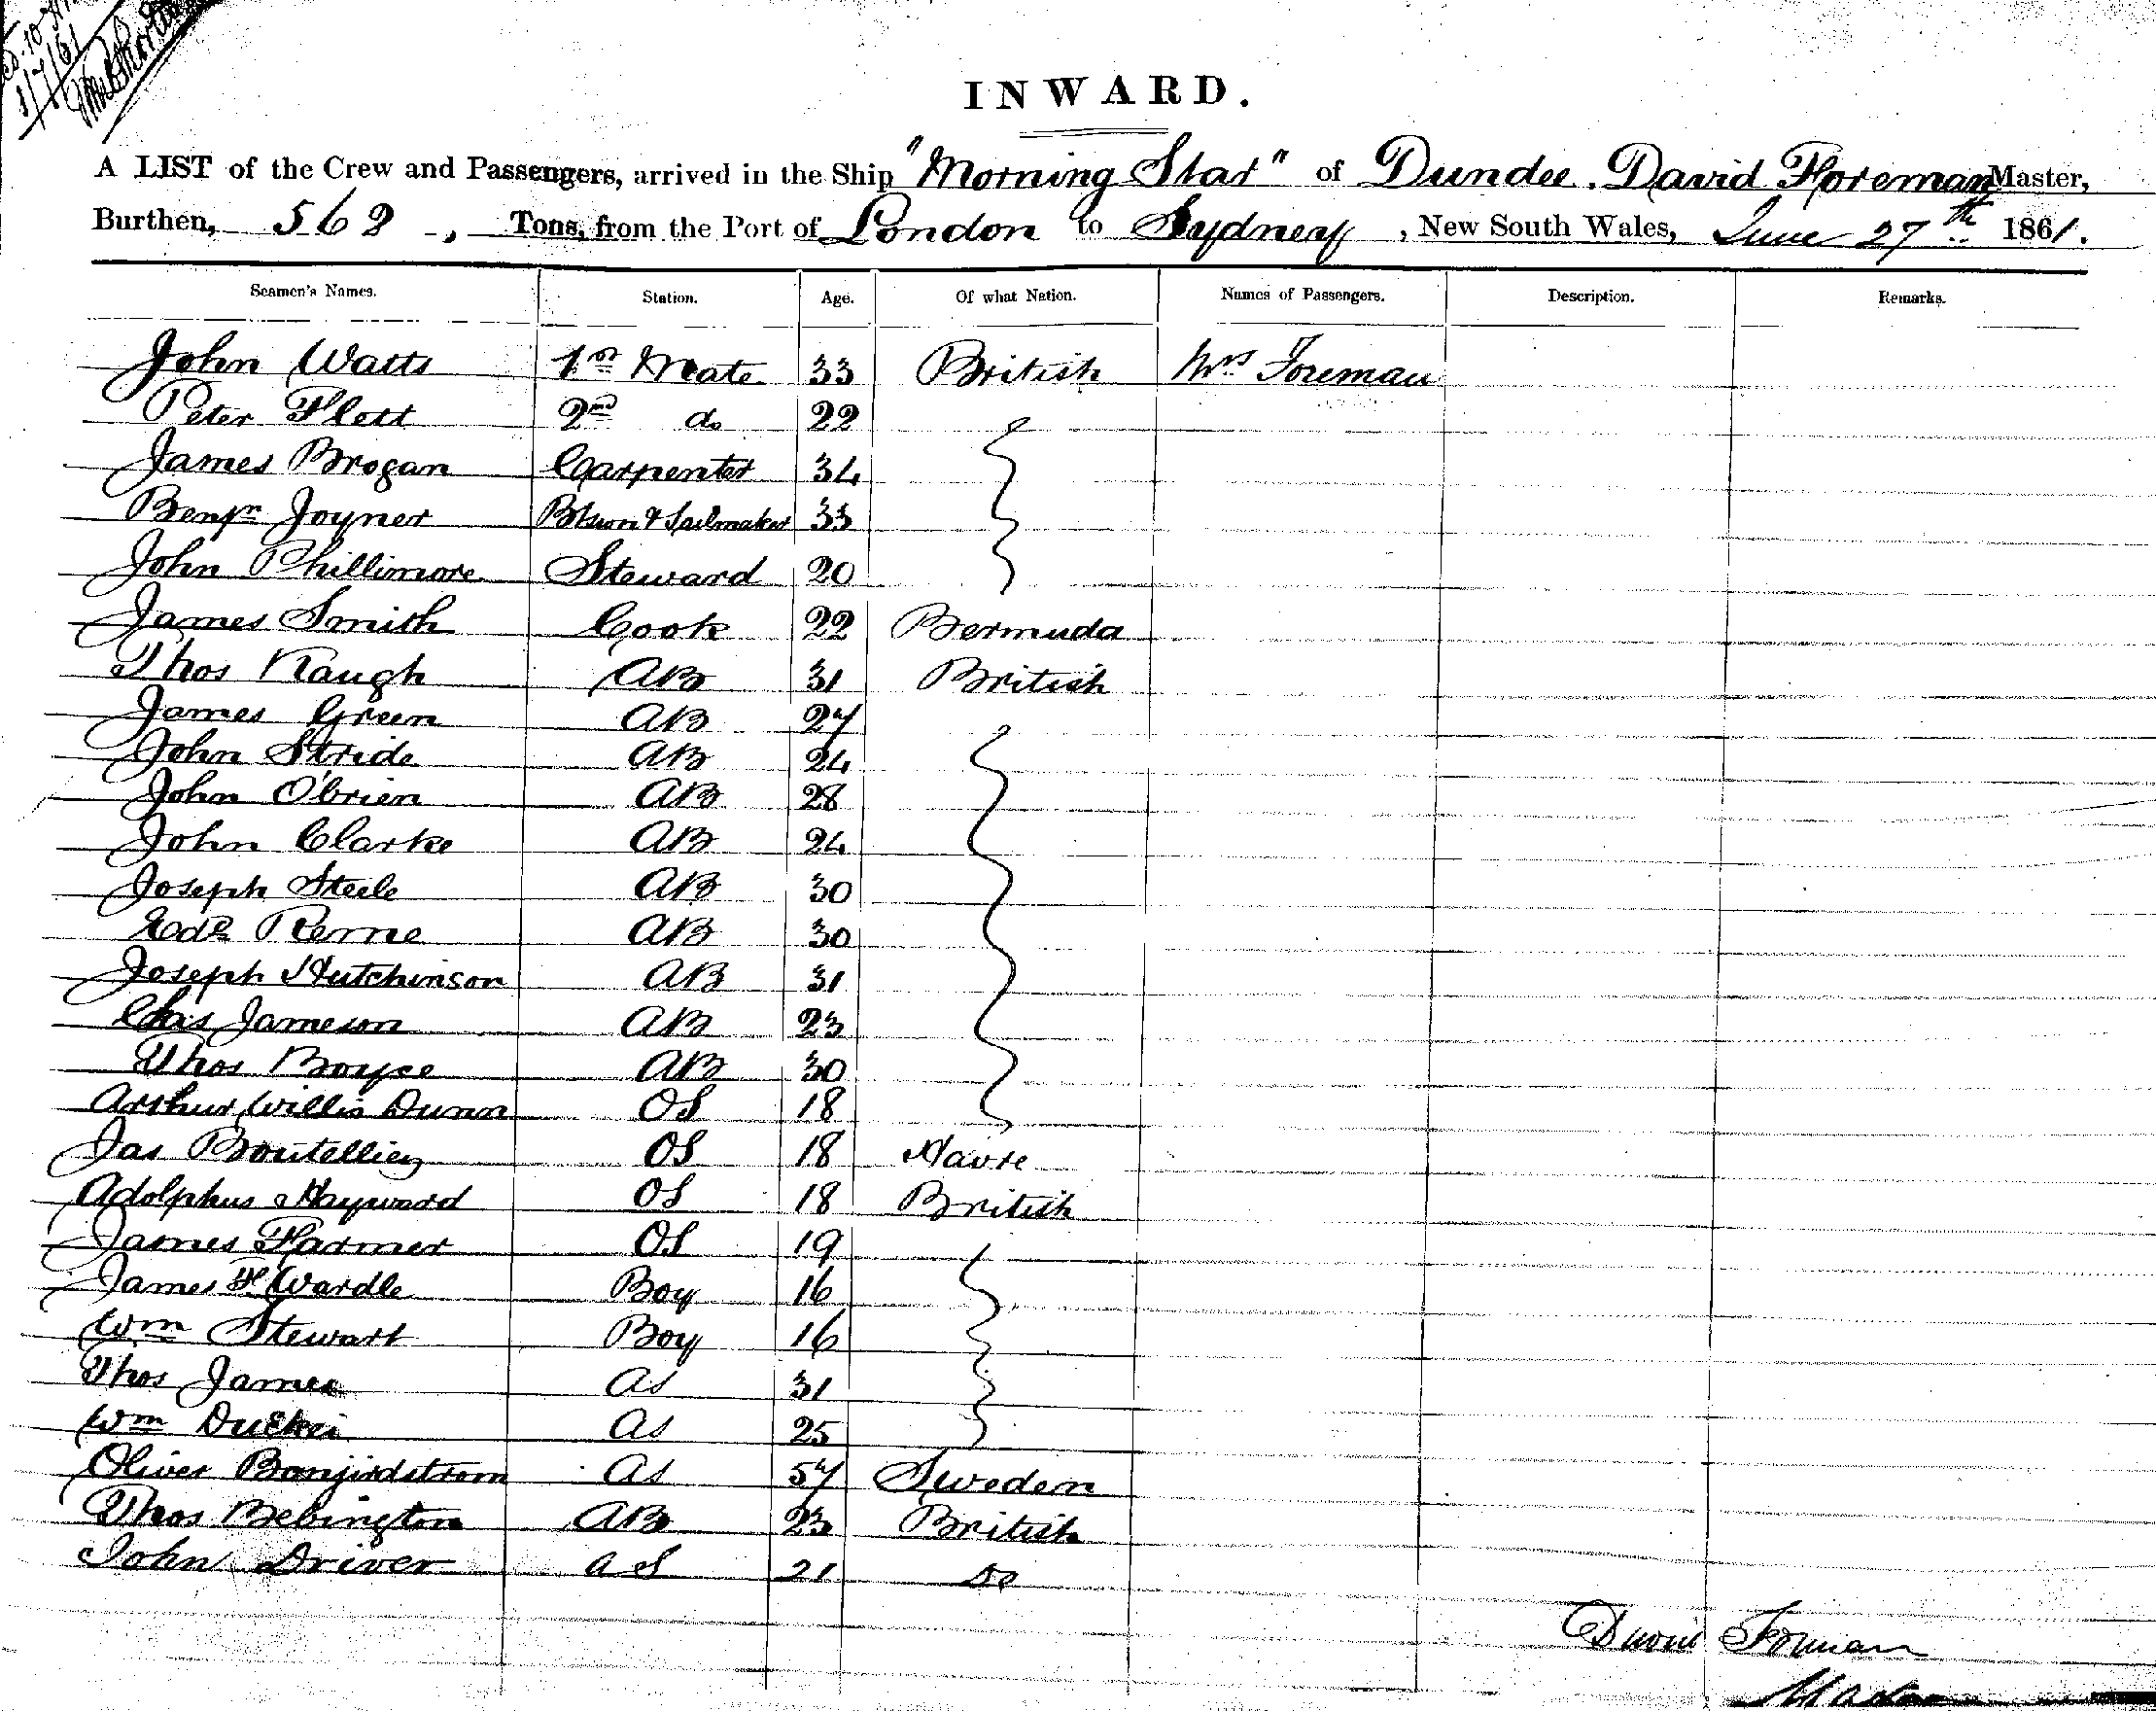 INWARD.
A LIST of the Crew and Passengers, arrived in the Ship "Morning Star" of Dundee. David Foreman Master,
Burthen, 562, Tons, from the Port of London to Sydney, New South Wales, June 27th 1861.
Seamen's Names. Station. Age. Of what Nation. Names of Passengers. Description. Remarks.
John Watts 1st Mate 33 British Mrs Foreman
Peter Flett 2nd do 22
James Brogan Carpenter 34
Benjn Joyner Btswn & Sailmaker 33
John Phillimore Steward 20
James Smith Cook 22 Bermuda
Thos AB 31 British
James Green AB 27
John Stride AB 24
John O'brien AB 28
John Clarke AB 24
Joseph Steele AB 30
AB 30
Joseph Hutchinson AB 31
Chas Jameson AB 23
Thos Boyce AB 30
Arthur Willis Dunn OS 18
Jas OS 18 Havre
Adolphus Hayward OS 18 British
James Farmer OS 19
James F Wardle Boy 16
Wm Stewart Boy 16
Thos James as 31
Wm as 25
Oliver as 57 Sweden
Thos Bebington AB 23 British
John Driver a S 21 do
David Foreman
Master